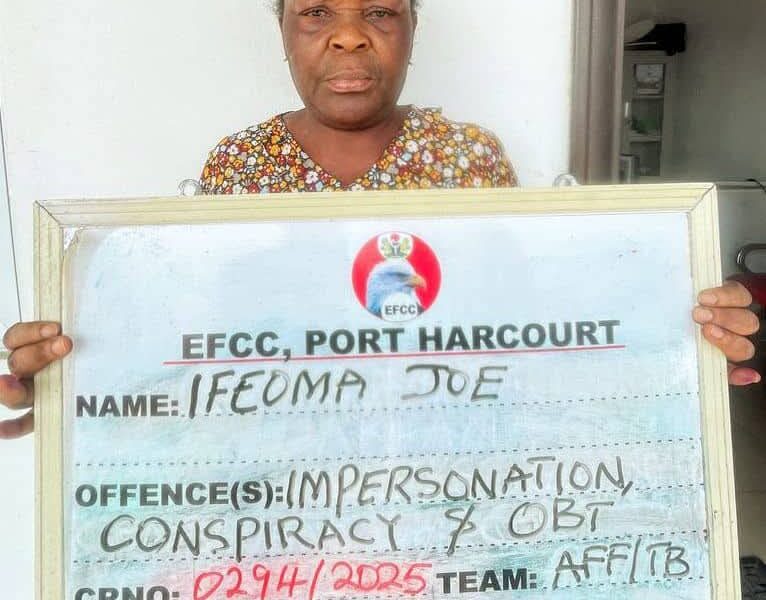 EFCC
EFCC, PORT HARCOURT
NAME: IFEOMA JOE
OFFENCE(S): IMPERSONATION,
CONSPIRACY & OBT
CRNO: 0294/2025 TEAM: AFF/TB